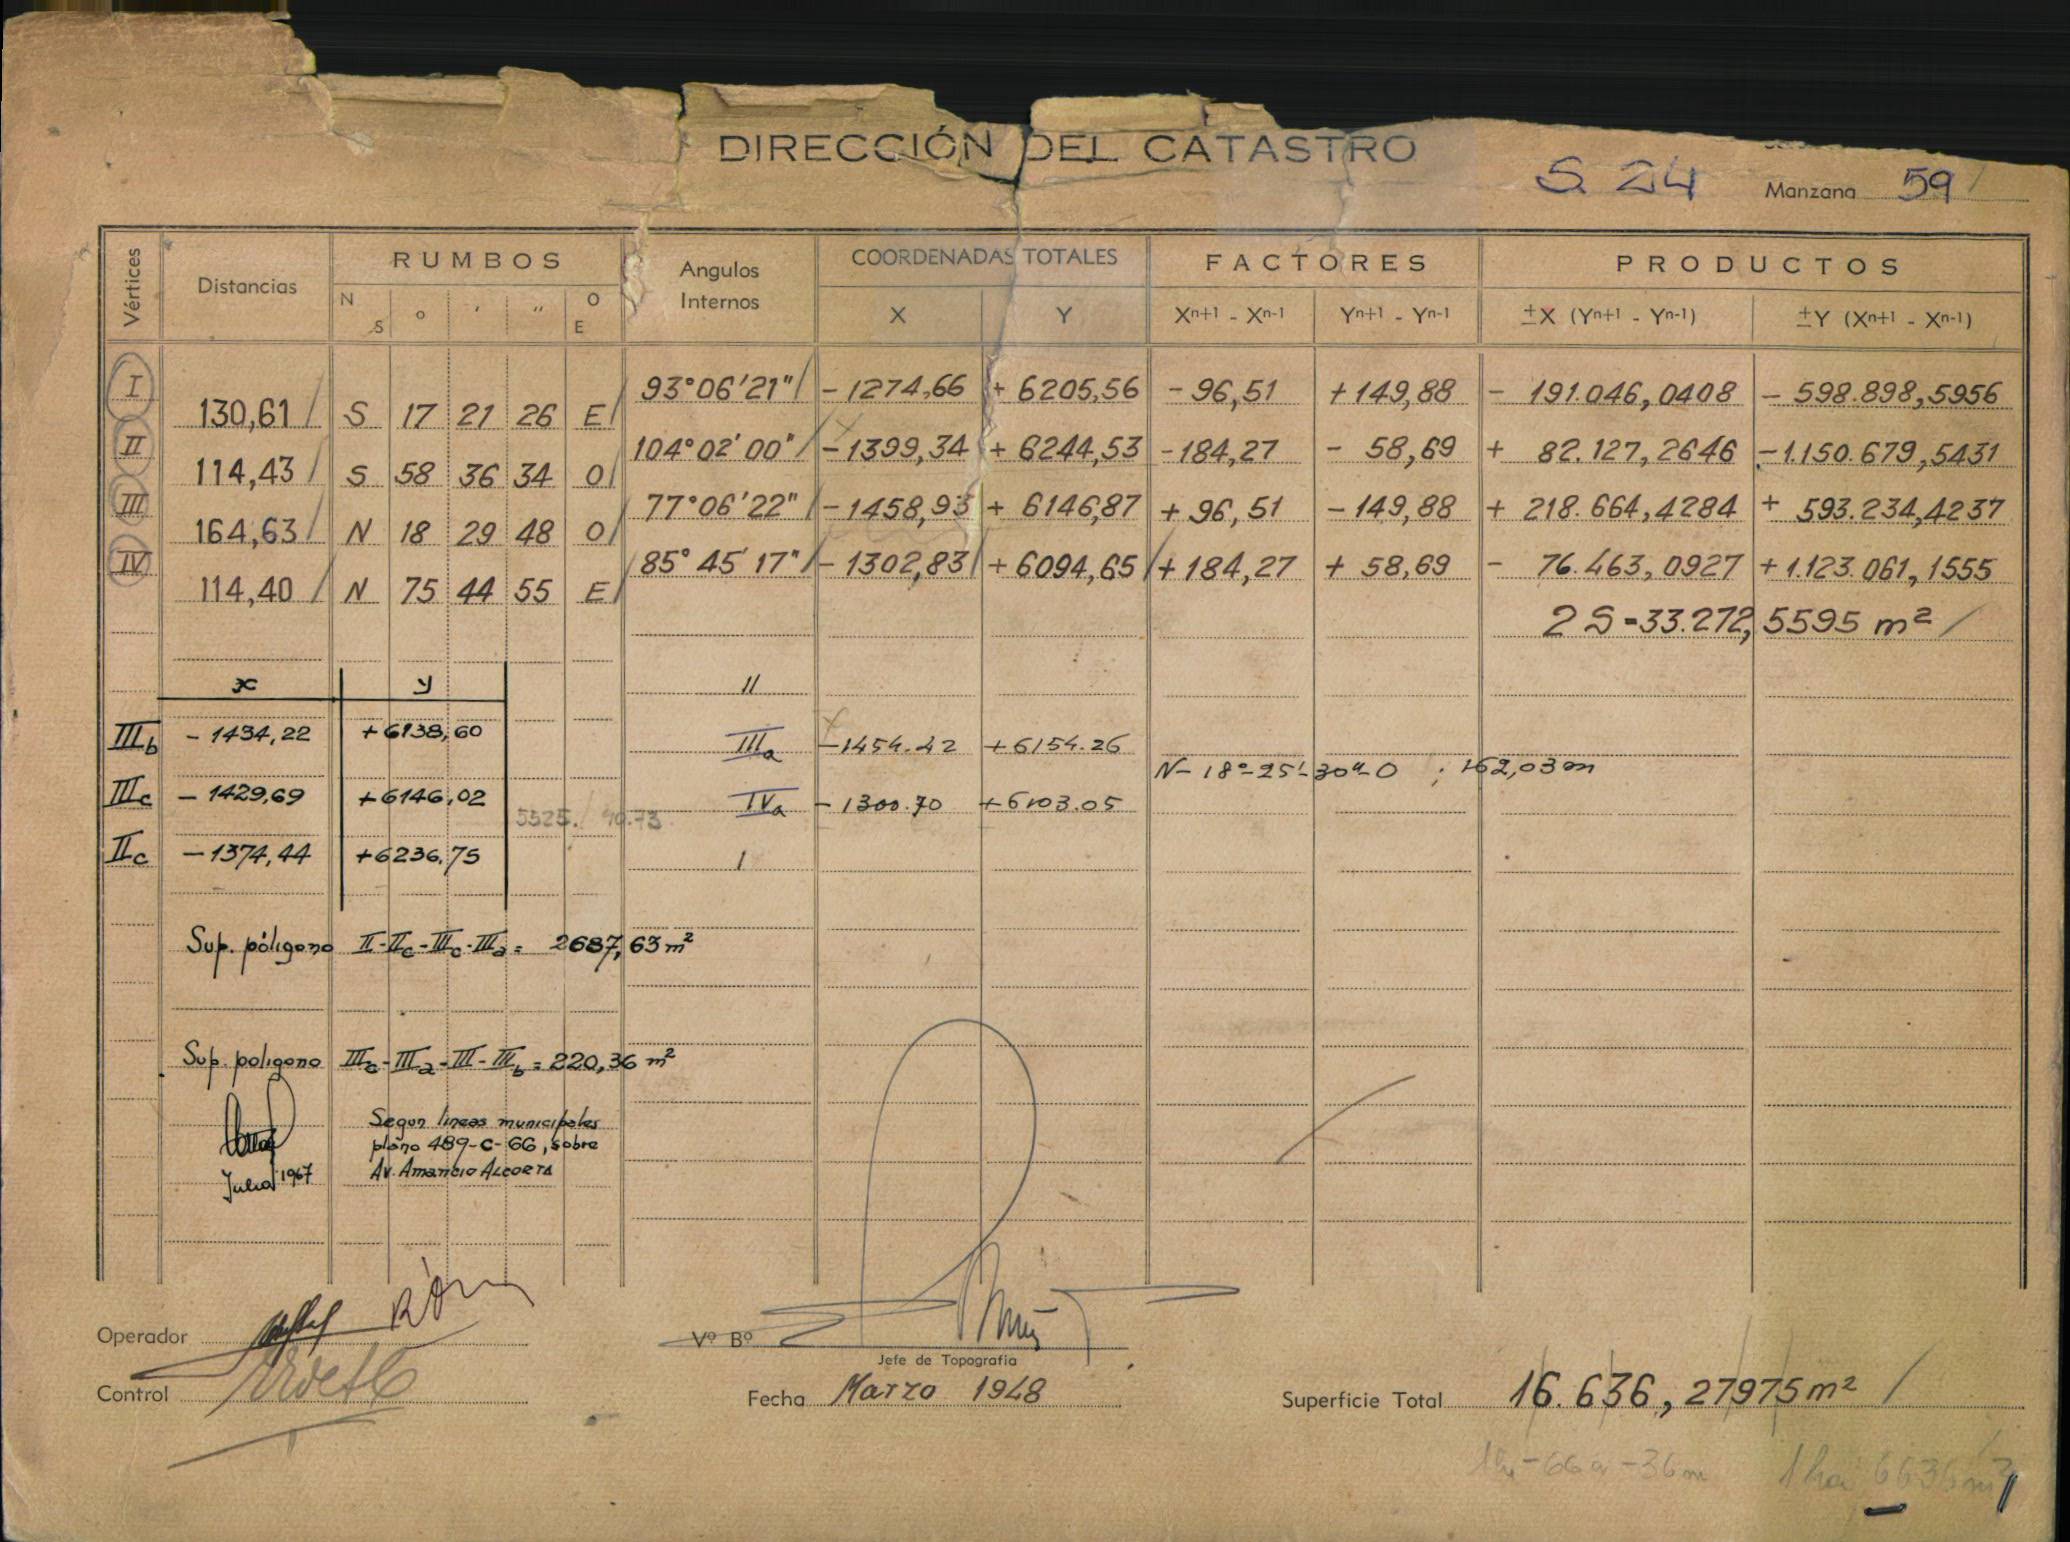 DIRECCIÓN DEL CATASTRO
S. 24 Manzana 59
Vértices Distancias RUMBOS Angulos Internos COORDENADAS TOTALES FACTORES PRODUCTOS
N S ° ' '' O E X Y Xn+1 - Xn-1 Yn+1 - Yn-1 ±X (Yn+1 - Yn-1) ±Y (Xn+1 - Xn-1)
I 93°06'21" - 1274,66 + 6205,56 - 96,51 + 149,88 - 191.046,0408 - 598.898,5956
130,61 S 17 21 26 E
II 104°02'00" - 1399,34 + 6244,53 - 184,27 - 58,69 + 82.127,2646 - 1.150.679,5431
114,43 S 58 36 34 O
III 77°06'22" - 1458,93 + 6146,87 + 96,51 - 149,88 + 218.664,4284 + 593.234,4237
164,63 N 18 29 48 O
IV 85°45'17" - 1302,83 + 6094,65 + 184,27 + 58,69 - 76.463,0927 + 1.123.061,1555
114,40 N 75 44 55 E
2 S = 33.272,5595 m²
x y II
IIIb - 1434,22 + 6138,60 IIIa - 1454.42 + 6154.26
N - 18° - 25' - 30" - O ; 162,03 m
IIIc - 1429,69 + 6146,02 IVa - 1300.70 + 6103.05
IIc - 1374,44 + 6236,75 I
Sup. póligono II - IIc - IIIc - IIIa = 2687,63 m²
Sup. poligono IIIc - IIIa - III - IIIb = 220,36 m²
Segun lineas municipales
plano 489-C-66, sobre
Av. Amancio Alcorta
Julio 1967
Operador
Vº Bº
Jefe de Topografía
Control
Fecha Marzo 1948
Superficie Total 16.636,27975 m²
1h - 66a - 36m 1 ha 6636 m²